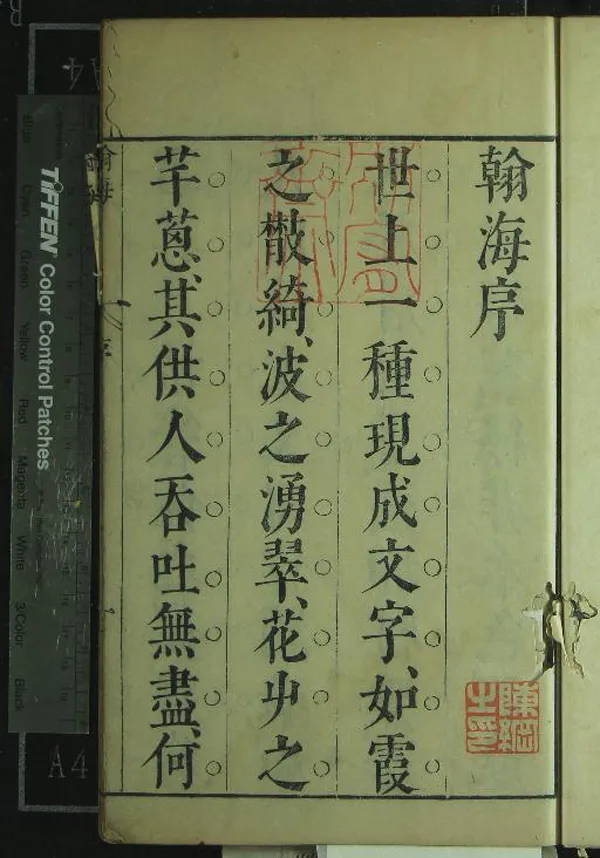 翰海序
世上一種現成文字、如霞
之散綺、波之湧翠、花屮之
芊蒽、其供人吞吐無盡、何
翰海
序
TIFFEN Color Control Patches
Blue
Cyan
Green
Yellow
Red
Magenta
White
3/Color
Black
A4
A4